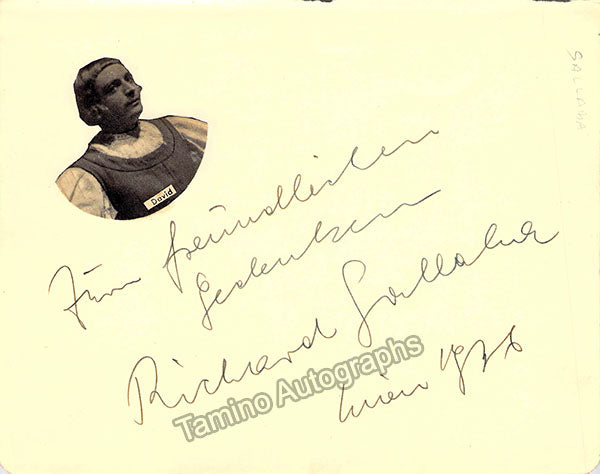 SALLABA
David
Zum freundlichen
Gedenken
Richard Sallaba
Wien 1936
Tamino Autographs